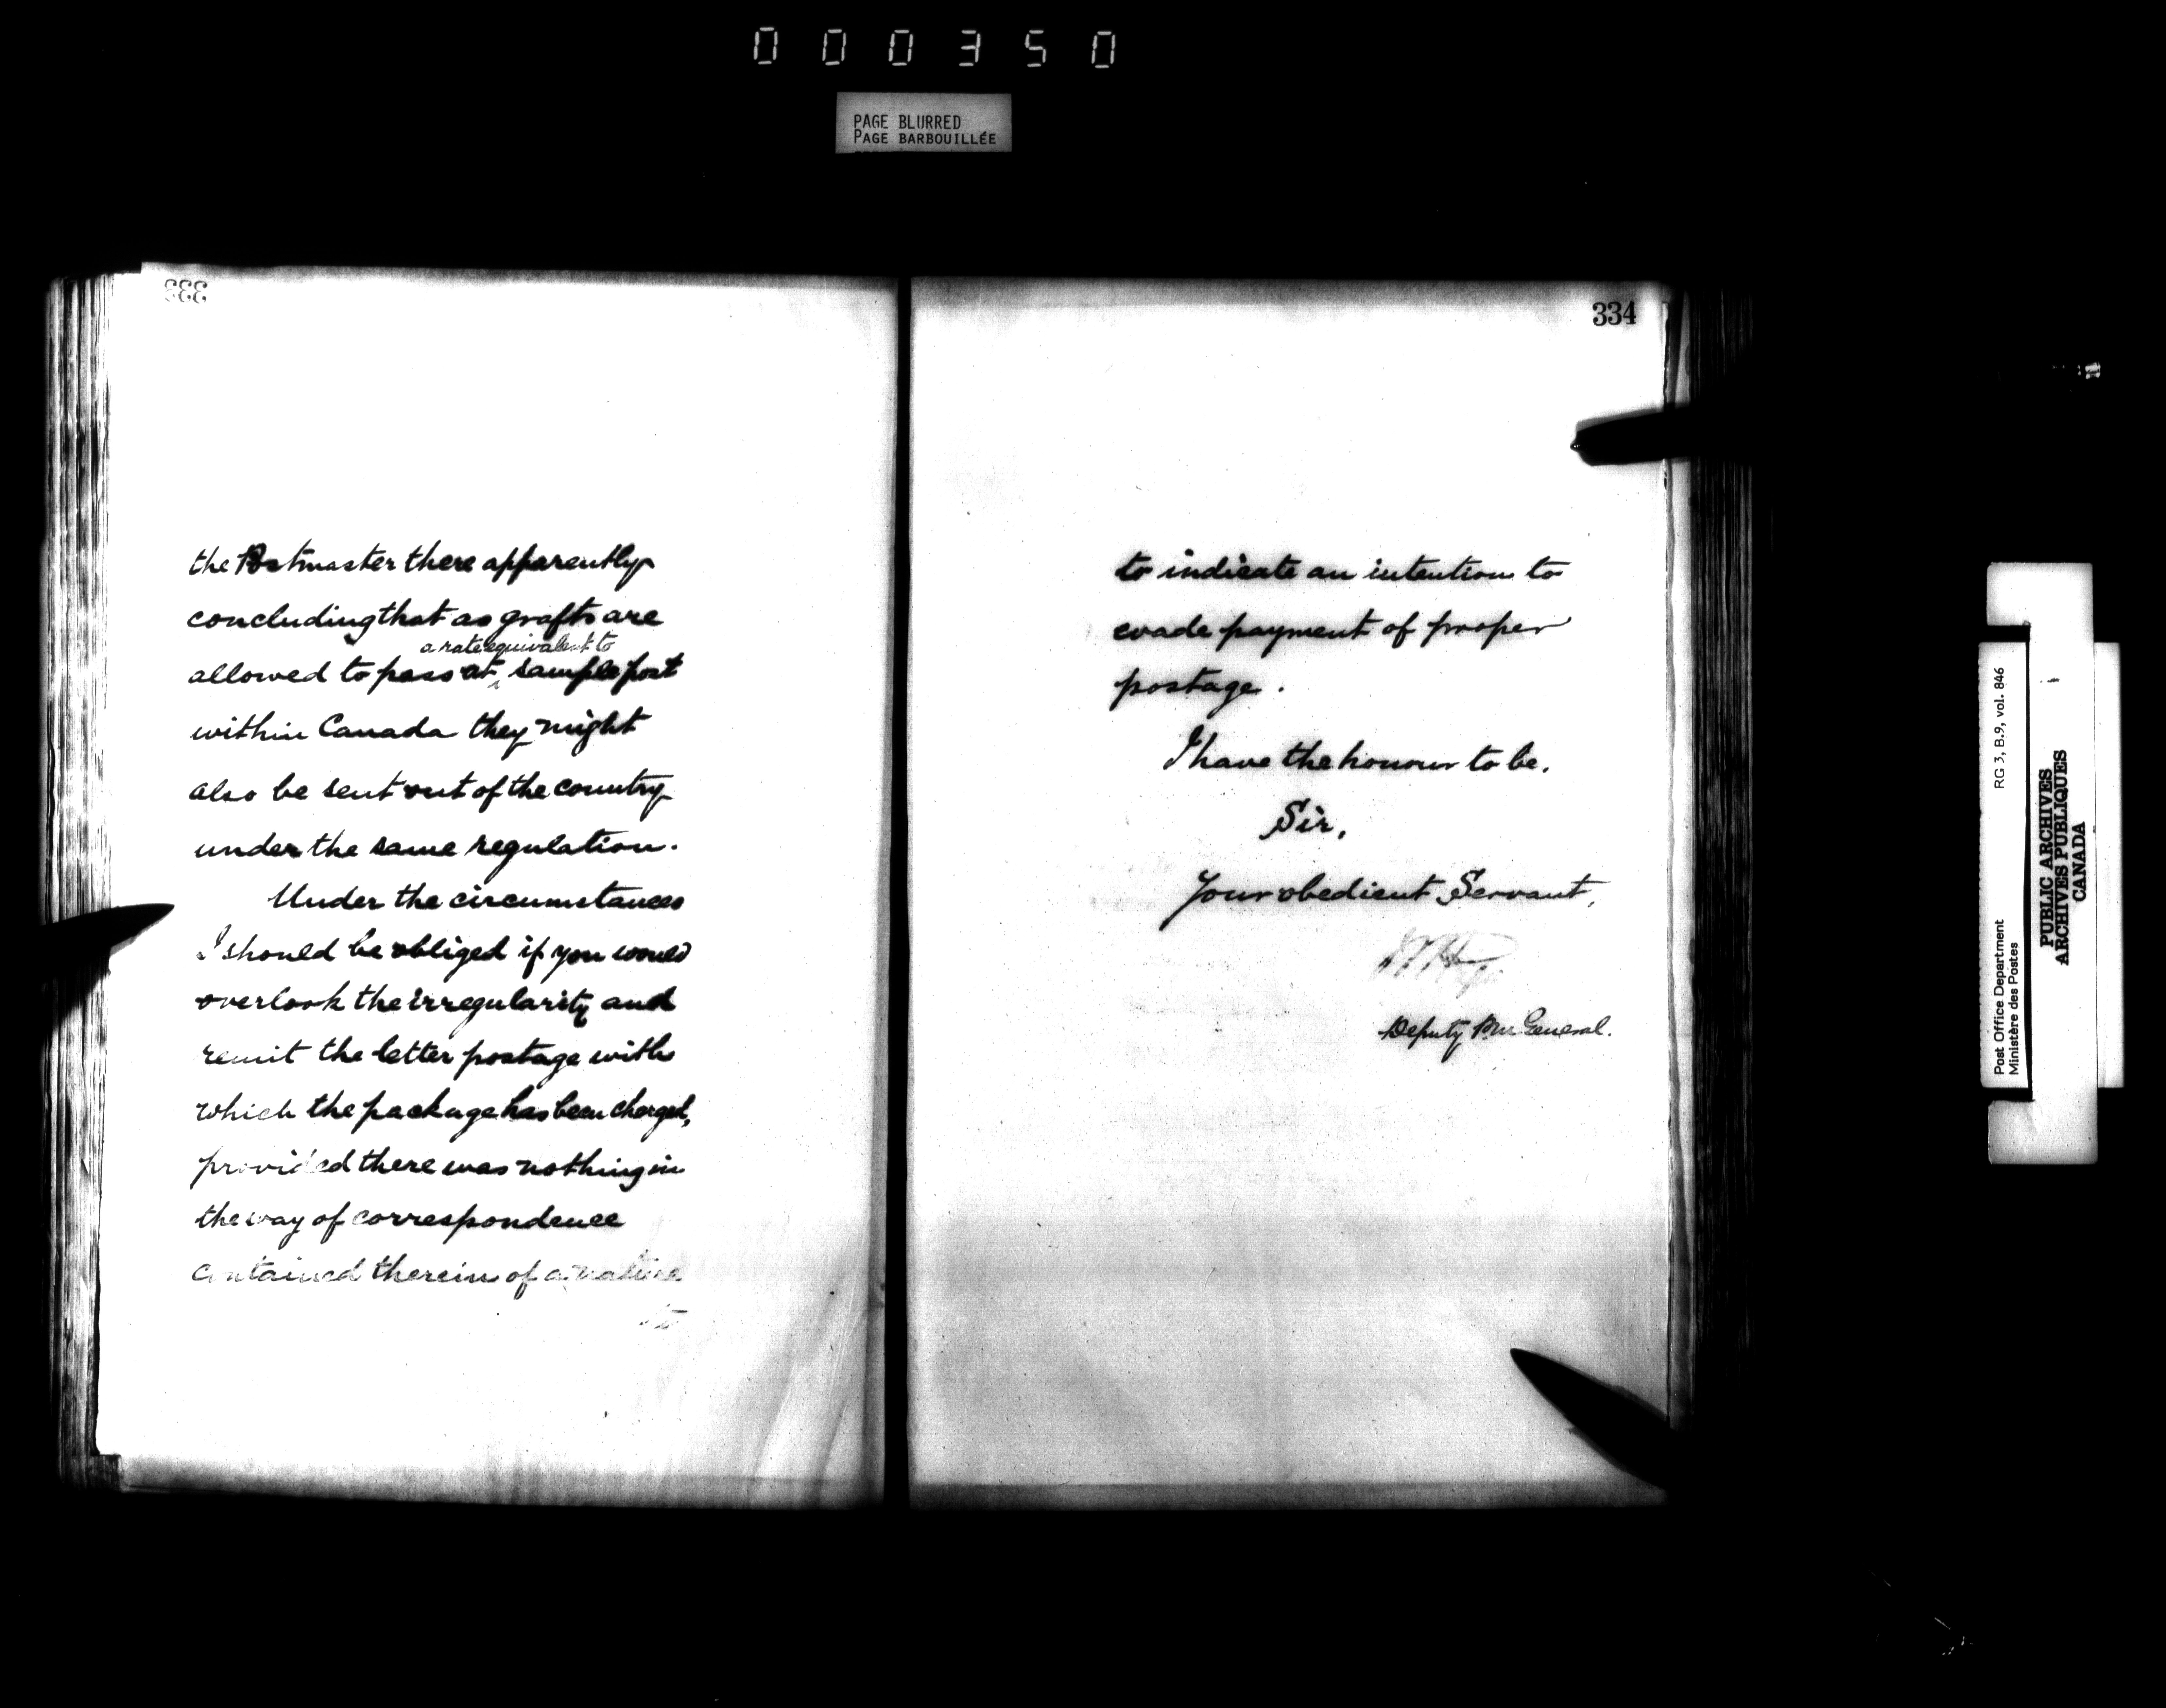 000350
PAGE BLURRED
PAGE BARBOUILLÉE
333
the Postmaster there apparently
concluding that as grafts are
a rate equivalent to
allowed to pass at ^ sample post
within Canada they might
also be sent out of the country
under the same regulation.
Under the circumstances
I should be obliged if you would
overlook the irregularity and
remit the letter postage with
which the package has been charged,
provided there was nothing in
the way of correspondence
contained therein of a nature
to
334
to indicate an intention to
evade payment of proper
postage.
I have the honour to be.
Sir,
Your obedient Servant,
Deputy P.M. General.
Post Office Department
Ministère des Postes
RG 3, B.9, vol. 846
PUBLIC ARCHIVES
ARCHIVES PUBLIQUES
CANADA